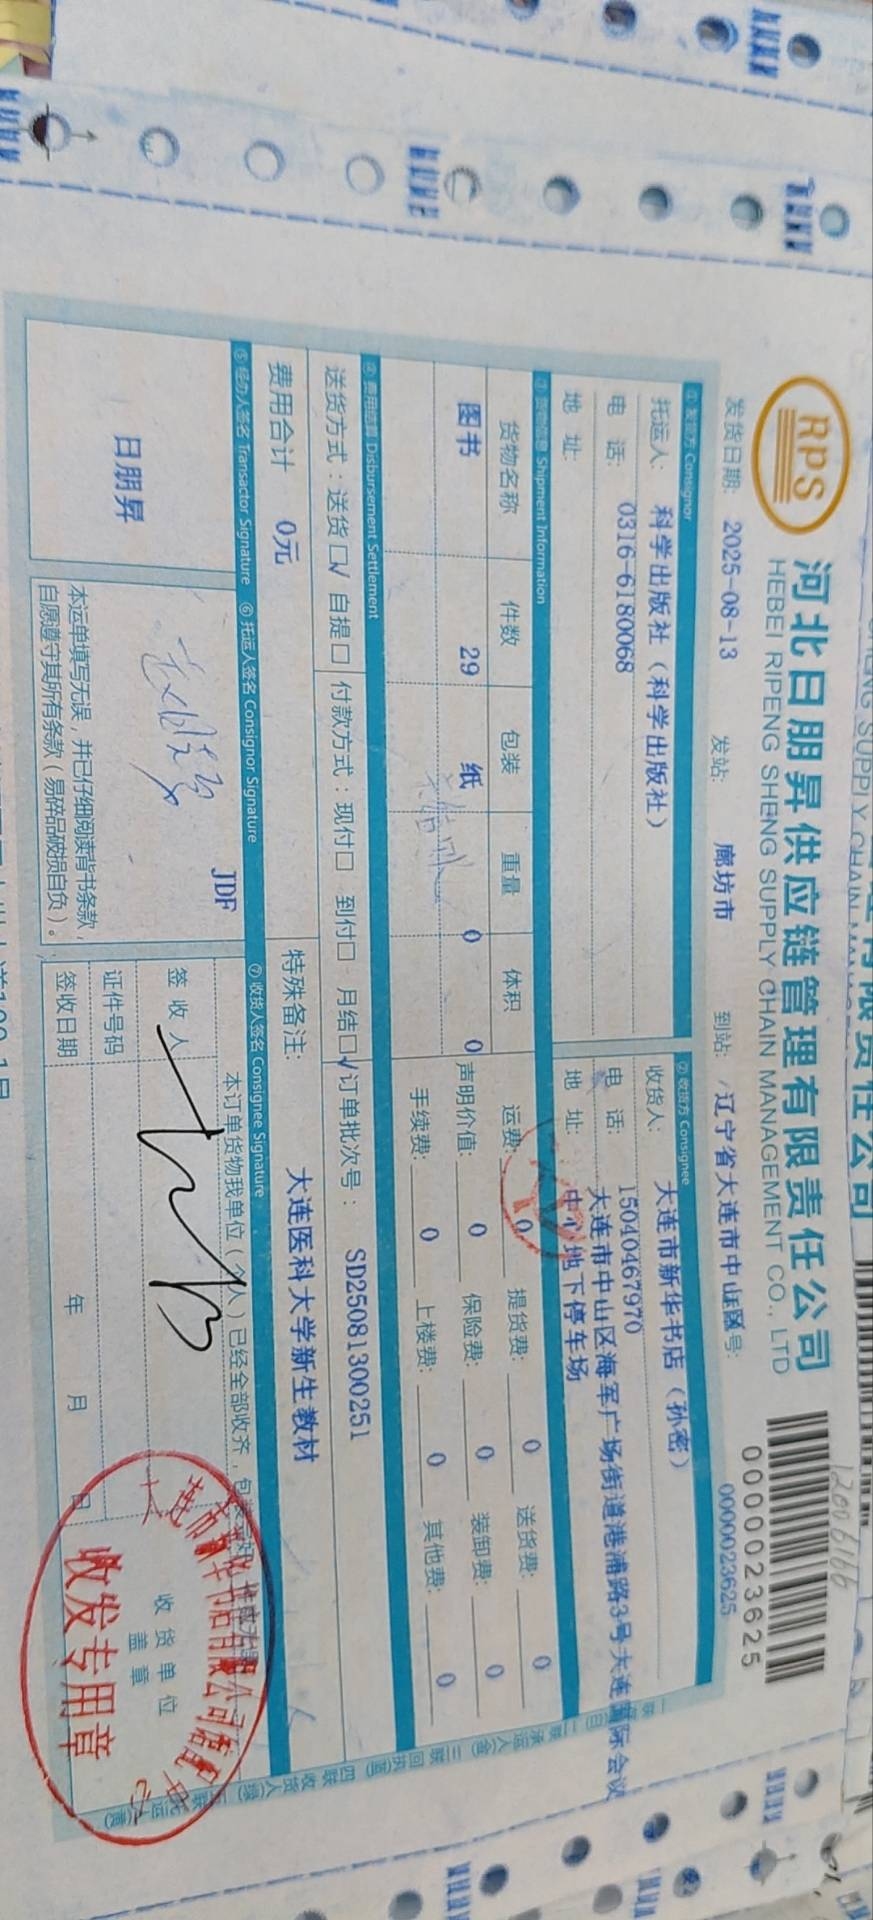 12006166
RPS
河北日朋昇供应链管理有限责任公司
HEBEI RIPENG SHENG SUPPLY CHAIN MANAGEMENT CO., LTD
0000023625
发货日期: 2025-08-13 发站: 廊坊市 到站: 辽宁省大连市中山区 号: 0000023625
① 发货方 Consignor
② 收货方 Consignee
托运人: 科学出版社（科学出版社）
收货人: 大连市新华书店（孙密）
电 话: 0316-6180068
电 话: 15040467970
地 址:
地 址: 大连市中山区海军广场街道港浦路3号大连国际会议
中心地下停车场
③ 货物信息 Shipment Information
货物名称 件数 包装 重量 体积
运费: 0 提货费: 0 送货费: 0
图书 29 纸 0 0
声明价值: 0 保险费: 0 装卸费: 0
手续费: 0 上楼费: 0 其他费: 0
④ 费用结算 Disbursement Settlement
送货方式：送货□√ 自提□ 付款方式：现付□ 到付□ 月结□√ 订单批次号： SD25081300251
费用合计 0元
特殊备注: 大连医科大学新生教材
⑤ 经办人签名 Transactor Signature ⑥ 托运人签名 Consignor Signature ⑦ 收货人签名 Consignee Signature
日朋昇
JDF
本运单填写无误，并已仔细阅读背书条款，
自愿遵守其所有条款（易碎品破损自负）。
本订单货物我单位（个人）已经全部收齐，
签 收 人
证件号码
签收日期 年 月 日
收货单位
盖章
收发专用章